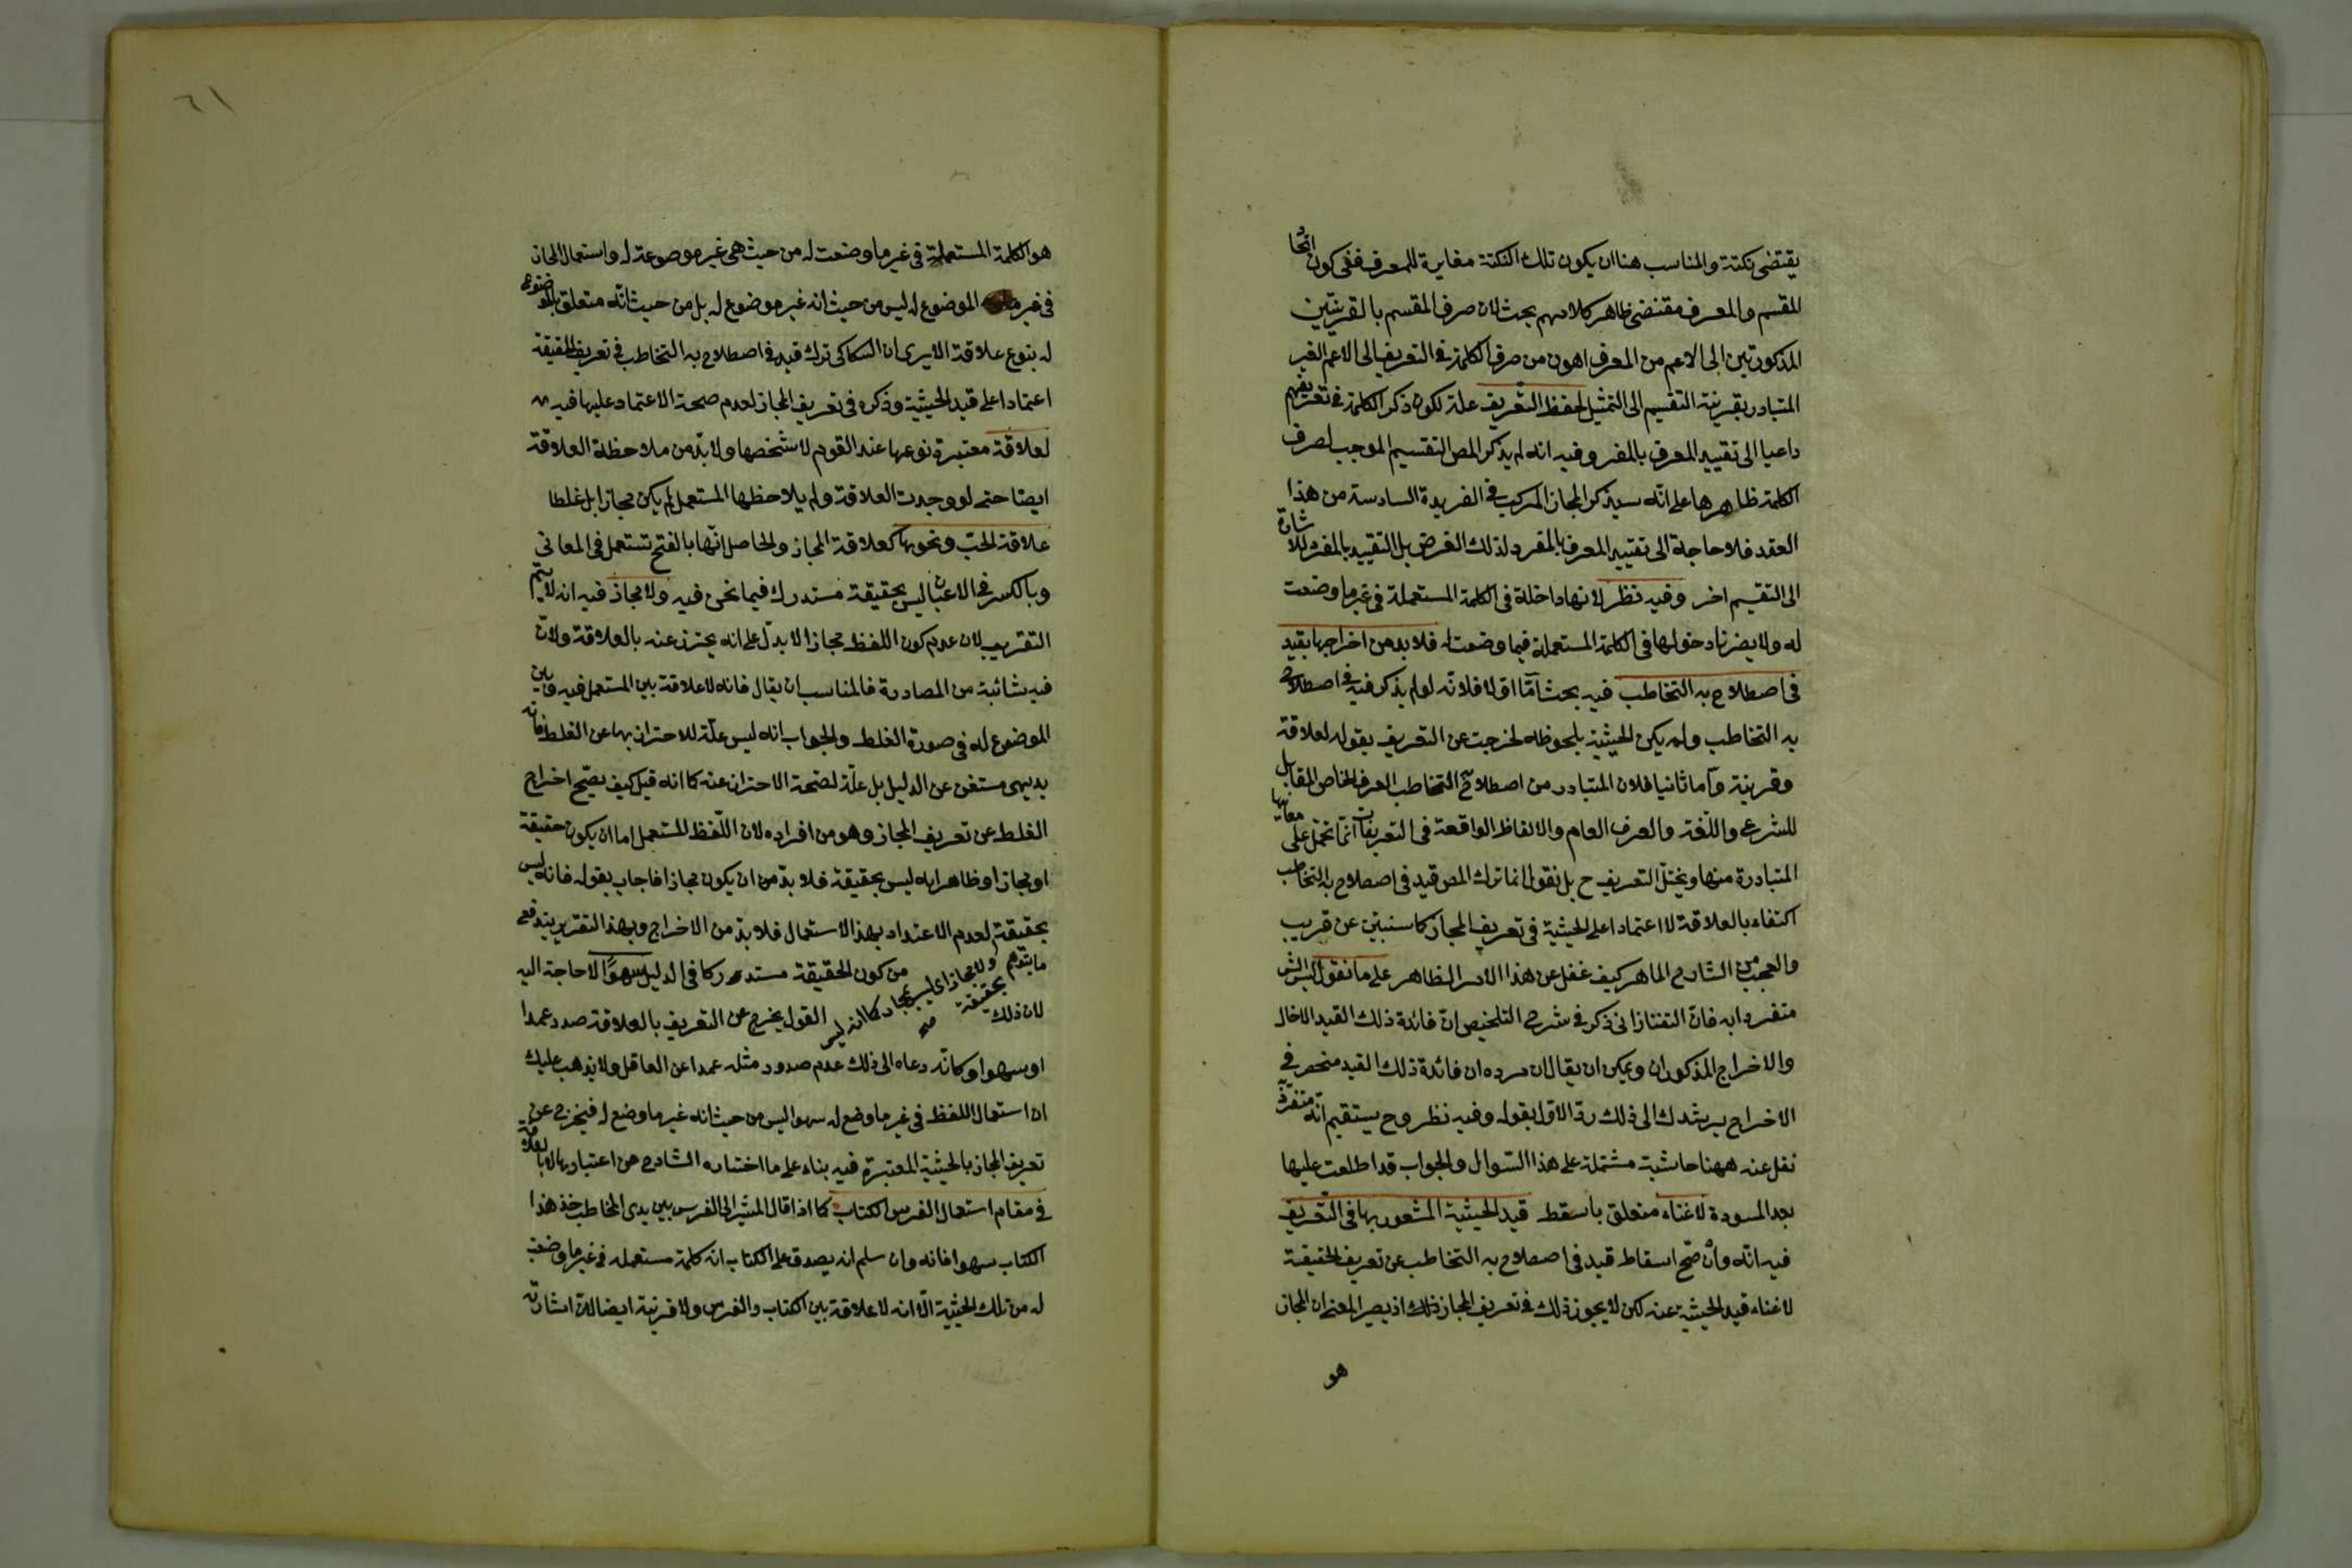 يقتضى نكتة والمناسب هنا ان يكون تلك النكتة مغايرة للمعرف ففى كون اتحاد
المقسم والمعرف مقتضى ظاهر كلامهم بحث لان صرف المقسم بالقرينتين
المذكورتين الى الاعم من المعرف اهون من صرف الكلمة فى التعريف الى الاعم الغير
المتبادر بقرينة التقسيم الى التمثيل لحفظ التعريف علة لكون ذكر الكلمة فى تعريفهم
داعيا الى تقييد المعرف بالمفرد وفيه انه لم يذكر المص التقسيم الموجب لصرف
الكلمة ظاهرها على انه سيذكر المجاز المركب فى الفريدة السادسة من هذا
العقد فلا حاجة الى تقييد المعرف بالمفرد لذلك الغرض بل التقييد بالمفرد للاشارة
الى التقسيم اخر وفيه نظر لانها داخلة فى الكلمة المستعملة فى غير ما وضعت
له ولا يضرنا دخولها فى الكلمة المستعملة فيما وضعت له فلا بد من اخراجها بقيد
فى اصطلاح به التخاطب فيه بحث اما اولا فلانه لو لم يذكر فيه فى اصطلاح
به التخاطب ولم يكن الحيثية ملحوظه لخرجت عن التعريف بقوله لعلاقة
وقرينة واما ثانيا فلان المتبادر من اصطلاح التخاطب العرف الخاص المقابل
للشرعى واللغة والعرف العام والالفاظ الواقعة فى التعريفات انما تحمل على معانيها
المتبادرة منها ويختل التعريف ح بل نقول انما ترك المص قيد فى اصطلاح به التخاطب
اكتفاء بالعلاقة لا اعتمادا على الحيثية فى تعريف المجاز كما سنبين عن قريب
والعجب من الشارح الماهر كيف غفل عن هذا الامر الظاهر على ما نقول ليس الش
متفردا به فان التفتازانى ذكر فى شرح التلخيص ان فائدة ذلك القيد الادخال
والاخراج المذكوران ويمكن ان يقال ان مرده ان فائدة ذلك القيد منحصر فى
الاخراج يرشدك الى ذلك رد الاول بقوله وفيه نظر وح يستقيم انه متفرد
نقل عنه ههنا حاشية مشتملة على هذا السؤال والجواب قد اطلعت عليها
بعد المسودة لاغناء متعلق باسقط قيد الحيثية المشعور بها فى التعريف
فيه انه وان صح اسقاط قيد فى اصطلاح به التخاطب عن تعريف الحقيقة
لاغناء قيد الحيثية عنه لكن لا يجوز ذلك فى تعريف المجاز ذلك اذ يصير المعنى ان المجاز
هو
٦١
هو الكلمة المستعملة فى غير ما وضعت له من حيث هى غير موصوعة له واستعمال المجاز
فى غير الموضوع له ليس من حيث انه غير موضوع له بل من حيث انه متعلق بالموضوع
له بنوع علاقة الا يرى ان السكاكى ترك قيد فى اصطلاح به التخاطب فى تعريف الحقيقة
اعتمادا على قيد الحيثية وذكره فى تعريف المجاز لعدم صحة الاعتماد عليها فيه
لعلاقة معتبرة نوعها عند القوم لا شخصها ولا بد من ملاحظة العلاقة
ايضا حتى لو وجدت العلاقة ولم يلاحظها المستعمل لم يكن مجازا بل غلطا
علاقة الحب ونحوها كعلاقة المجاز والحاصل انها بالفتح تستعمل فى المعانى
وبالكسر فى الاعيان ليس بحقيقة مستدرك فيما نحن فيه ولا مجاز فيه انه لا يتم
التقريب لان عدم كون اللفظ مجازا لا يدل على انه يحترز عنه بالعلاقة ولان
فيه شائبة من المصادرة فالمناسب ان يقال فانه لا علاقة بين المستعمل فيه وبين
الموضوع له فى صورة الغلط والجواب انه ليس علة للاحتراز بها عن الغلط فانه
بديهى مستغن عن الدليل بل علة لصحة الاحتراز عنه كما انه قيل كيف يصح اخراج
الغلط عن تعريف المجاز وهو من افراده لان اللفظ المستعمل اما ان يكون حقيقة
او مجازا وظاهر انه ليس بحقيقة فلا بد من ان يكون مجازا فاجاب بقوله فانه ليس
بحقيقة لعدم الاعتداد بهذا الاستعمال فلا بد من الاخراج وبهذا التقرير يندفع
ما يتوهم من كون الحقيقة مستدركا فى الدليل سهوا لا حاجة اليه
ولا مجاز اى ليس بمجاز كما انه ليس بحقيقة صح
لان ذلك القول يخرج عن التعريف بالعلاقة صدر عمدا
او سهوا وكانه دعاه الى ذلك عدم صدور مثله عمدا عن العاقل ولا يذهب عليك
ان استعمال اللفظ فى غير ما وضع له سهوا ليس من حيث انه غير ما وضع له فيخرج عن
تعريف المجاز بالحيثية المعتبرة فيه بناء على ما اختاره الشارح من اعتبارها لا بالعلاقة
فى مقام استعمال الفرس الكتاب كما اذا قال المشير الى الفرس بين يدى المخاطب خذ هذا
الكتاب سهوا فانه وان سلم انه يصدق على الكتاب انه كلمة مستعمله فى غير ما وضعت
له من تلك الحيثية الا انه لا علاقة بين الكتاب والفرس ولا قرينة ايضا لان اشارته